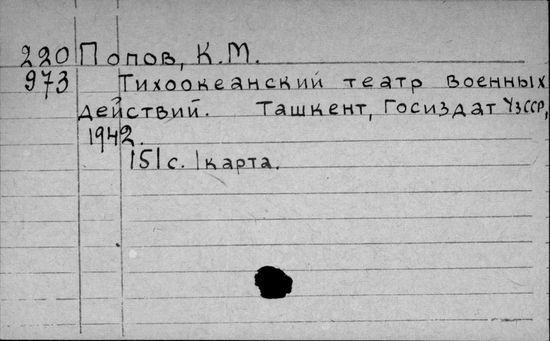 220 Попов, К.М.
973 Тихоокеанский театр военных
действий. Ташкент, Госиздат УзССР,
1942.
151с. 1карта.